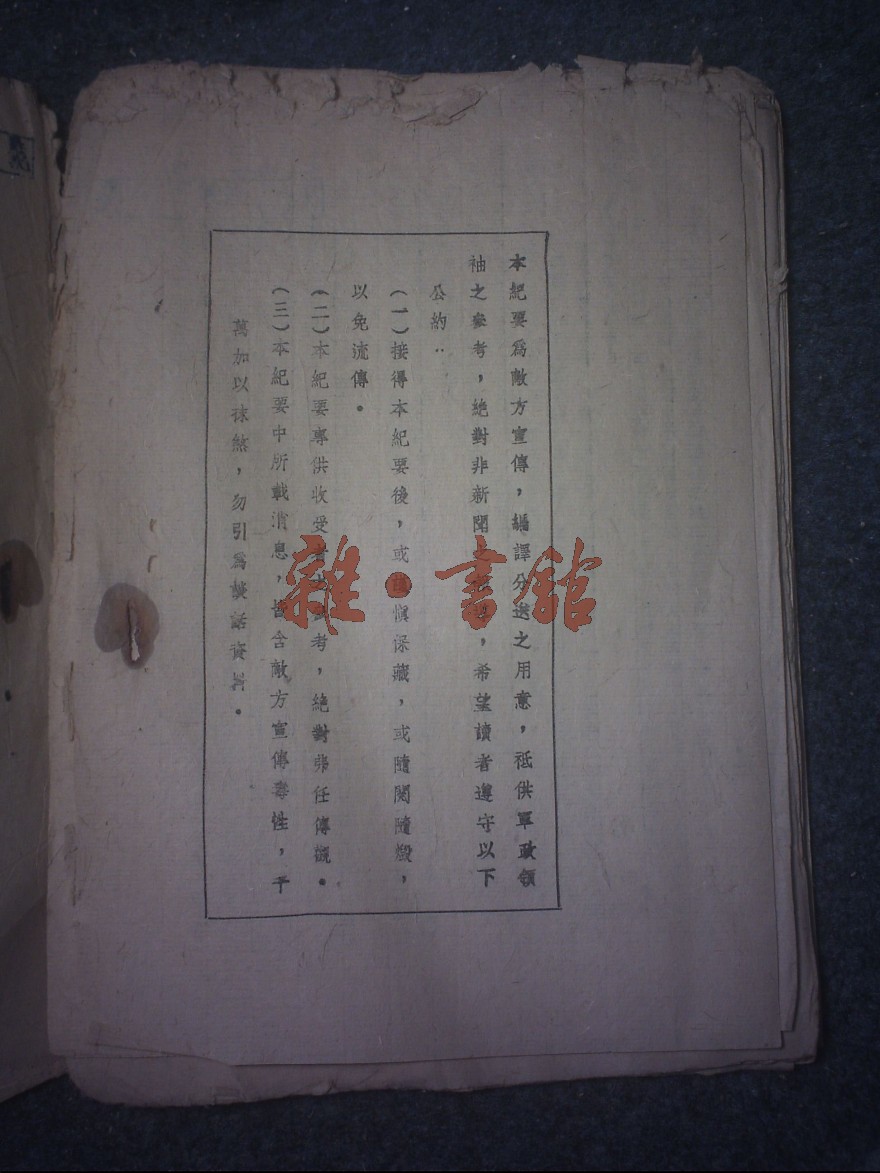 本紀要爲敵方宣傳，編譯分送之用意，祗供軍政領
袖之參考，絕對非新聞之，希望讀者遵守以下
公約：
（一）接得本紀要後，或謹愼保藏，或隨閱隨燬，
以免流傳。
（二）本紀要專供收受者參考，絕對弗任傳觀。
（三）本紀要中所載消息，皆含敵方宣傳毒性，千
萬加以抹煞，勿引爲談話資料。
雜·書館